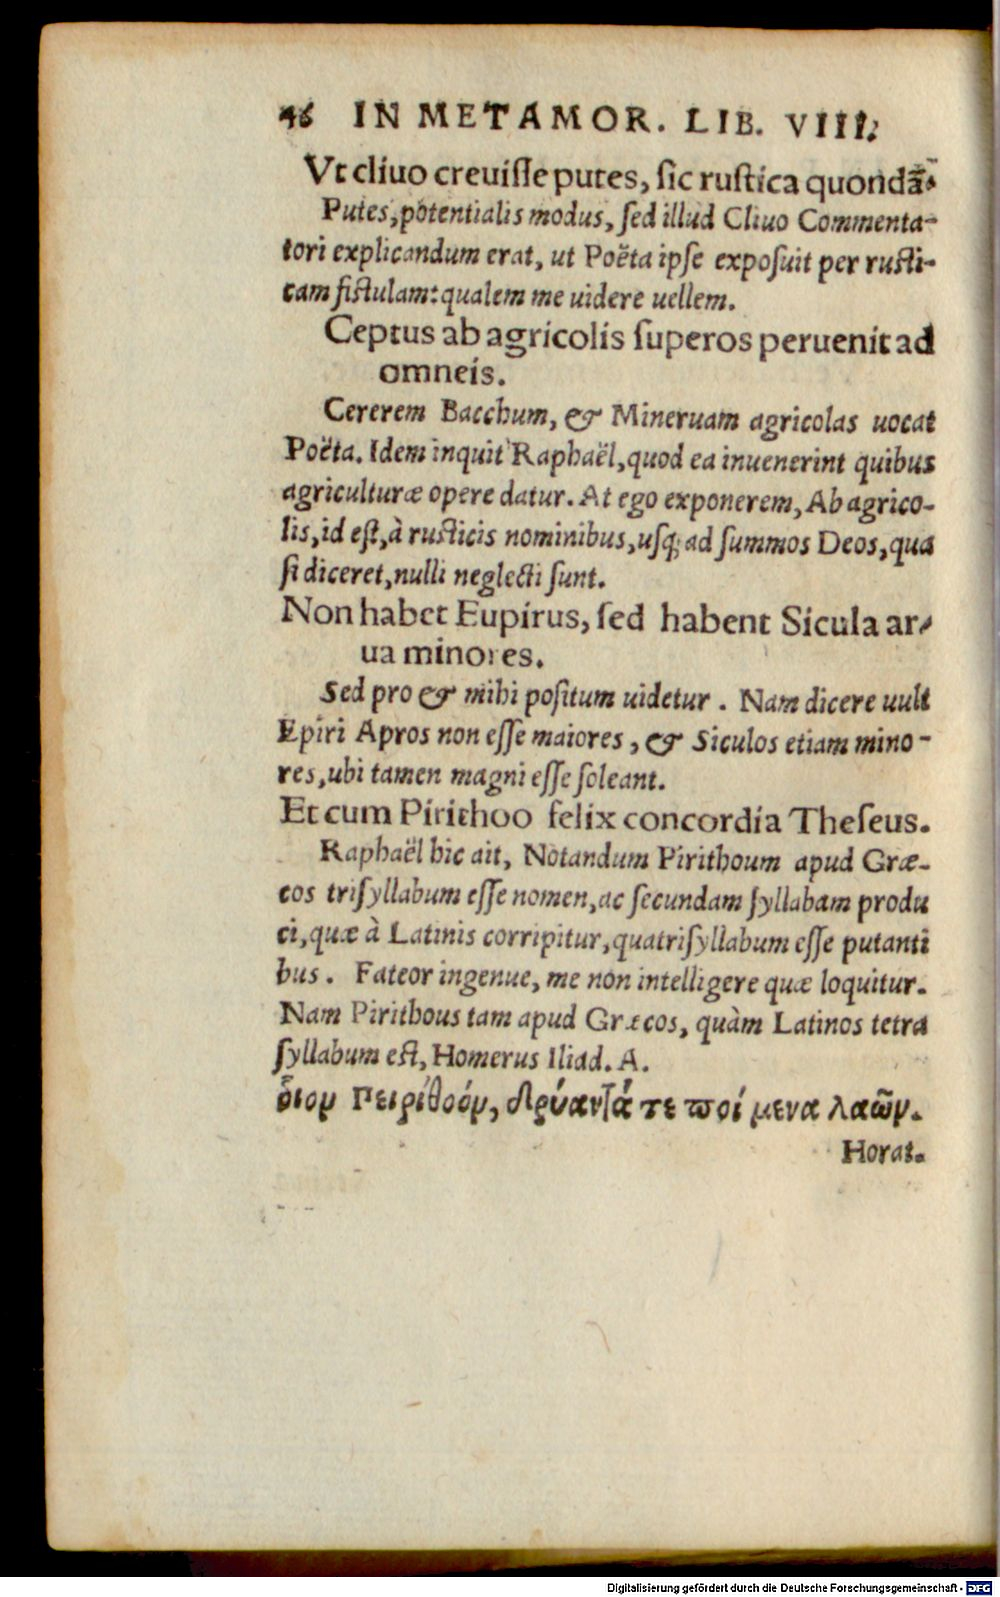 46 IN METAMOR. LIB. VIII.
Vt cliuo creuiſſe putes, ſic ruſtica quondã.
Putes, potentialis modus, ſed illud Cliuo Commenta-
tori explicandum erat, ut Poëta ipſe expoſuit per ruſti-
cam fiſtulam: qualem me uidere uellem.
Ceptus ab agricolis ſuperos peruenit ad
omneis.
Cererem Bacchum, & Mineruam agricolas uocat
Poëta. Idem inquit Raphaël, quod ea inuenerint quibus
agriculturæ opere datur. At ego exponerem, Ab agrico-
lis, id eſt, à ruſticis nominibus, uſq; ad ſummos Deos, qua
ſi diceret, nulli neglecti ſunt.
Non habet Eupirus, ſed habent Sicula ar-
ua minores.
Sed pro & mihi poſitum uidetur. Nam dicere uult
Epiri Apros non eſſe maiores, & Siculos etiam mino-
res, ubi tamen magni eſſe ſoleant.
Et cum Pirithoo felix concordia Theſeus.
Raphaël hic ait, Notandum Pirithoum apud Græ-
cos triſyllabum eſſe nomen, ac ſecundam ſyllabam produ
ci, quæ à Latinis corripitur, quatriſyllabum eſſe putanti
bus. Fateor ingenue, me non intelligere quæ loquitur.
Nam Pirithous tam apud Græcos, quàm Latinos tetra
ſyllabum eſt, Homerus Iliad. A.
οἷον Πειρίθοόν, δρύαντά τε ποιμένα λαῶν.
Horat.
Digitalisierung gefördert durch die Deutsche Forschungsgemeinschaft - DFG